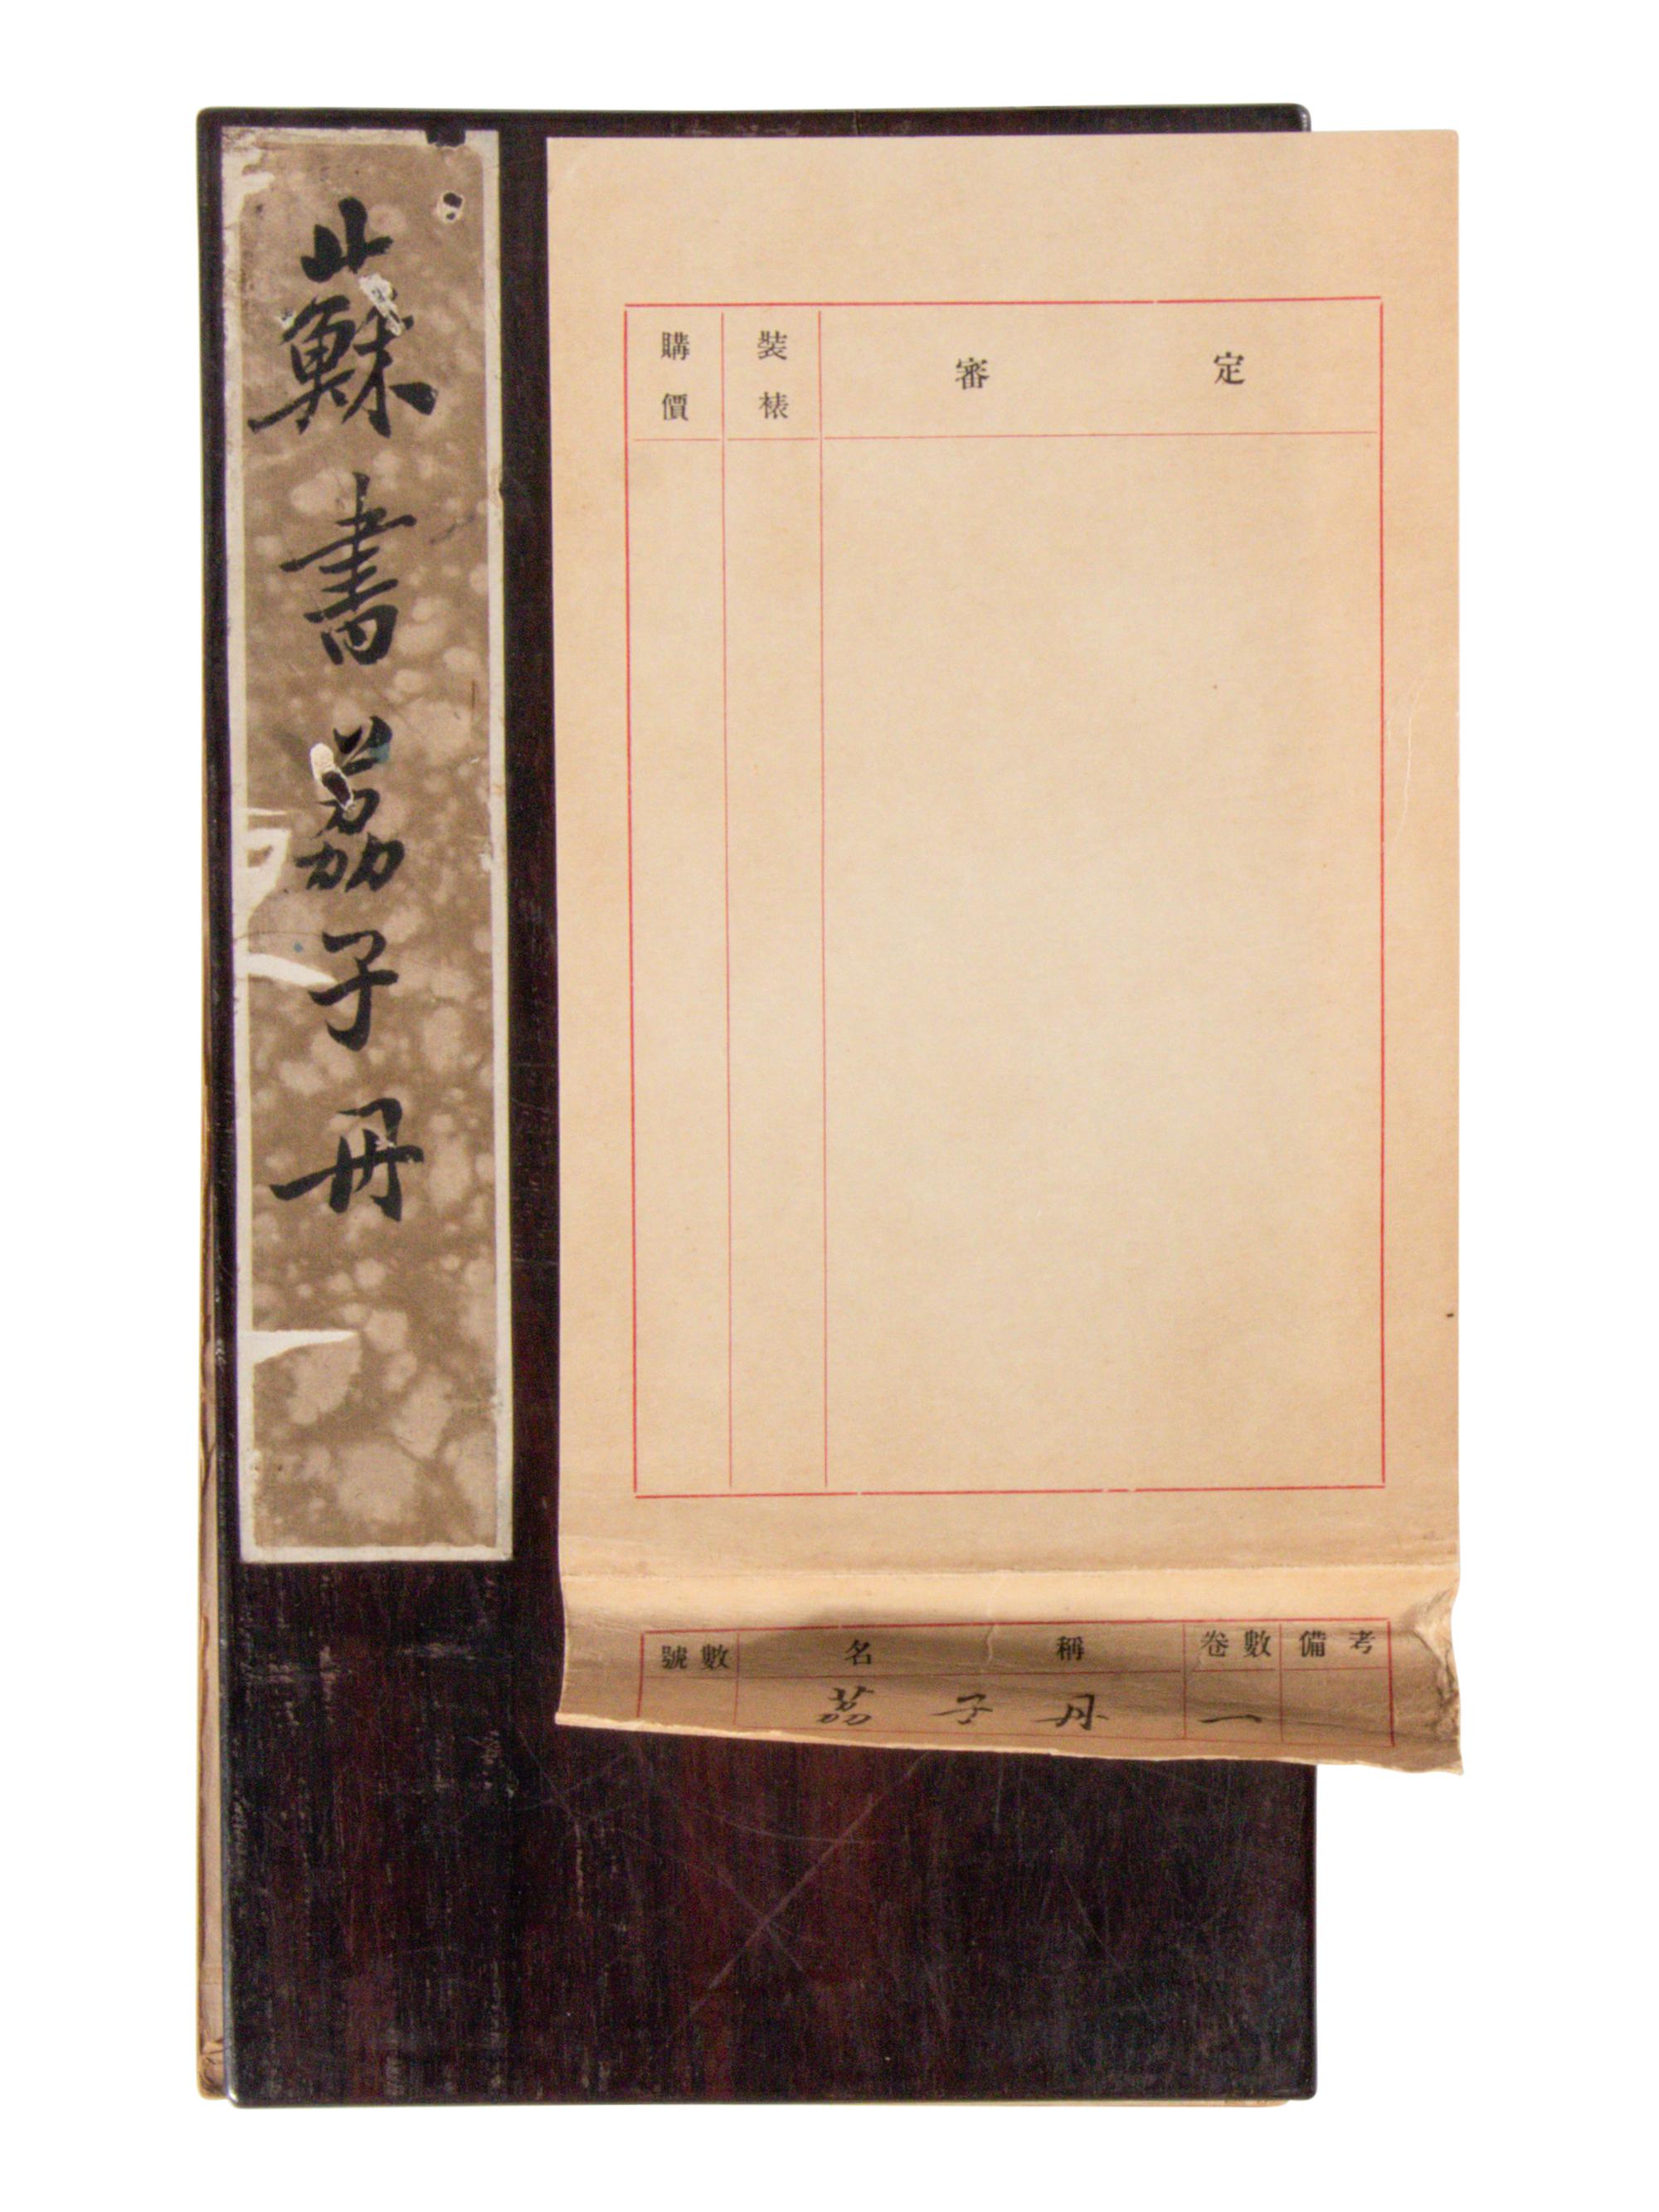 蘇書茘子冊
購價
裝裱
審定
號數 名稱 卷數 備考
茘子丹 一